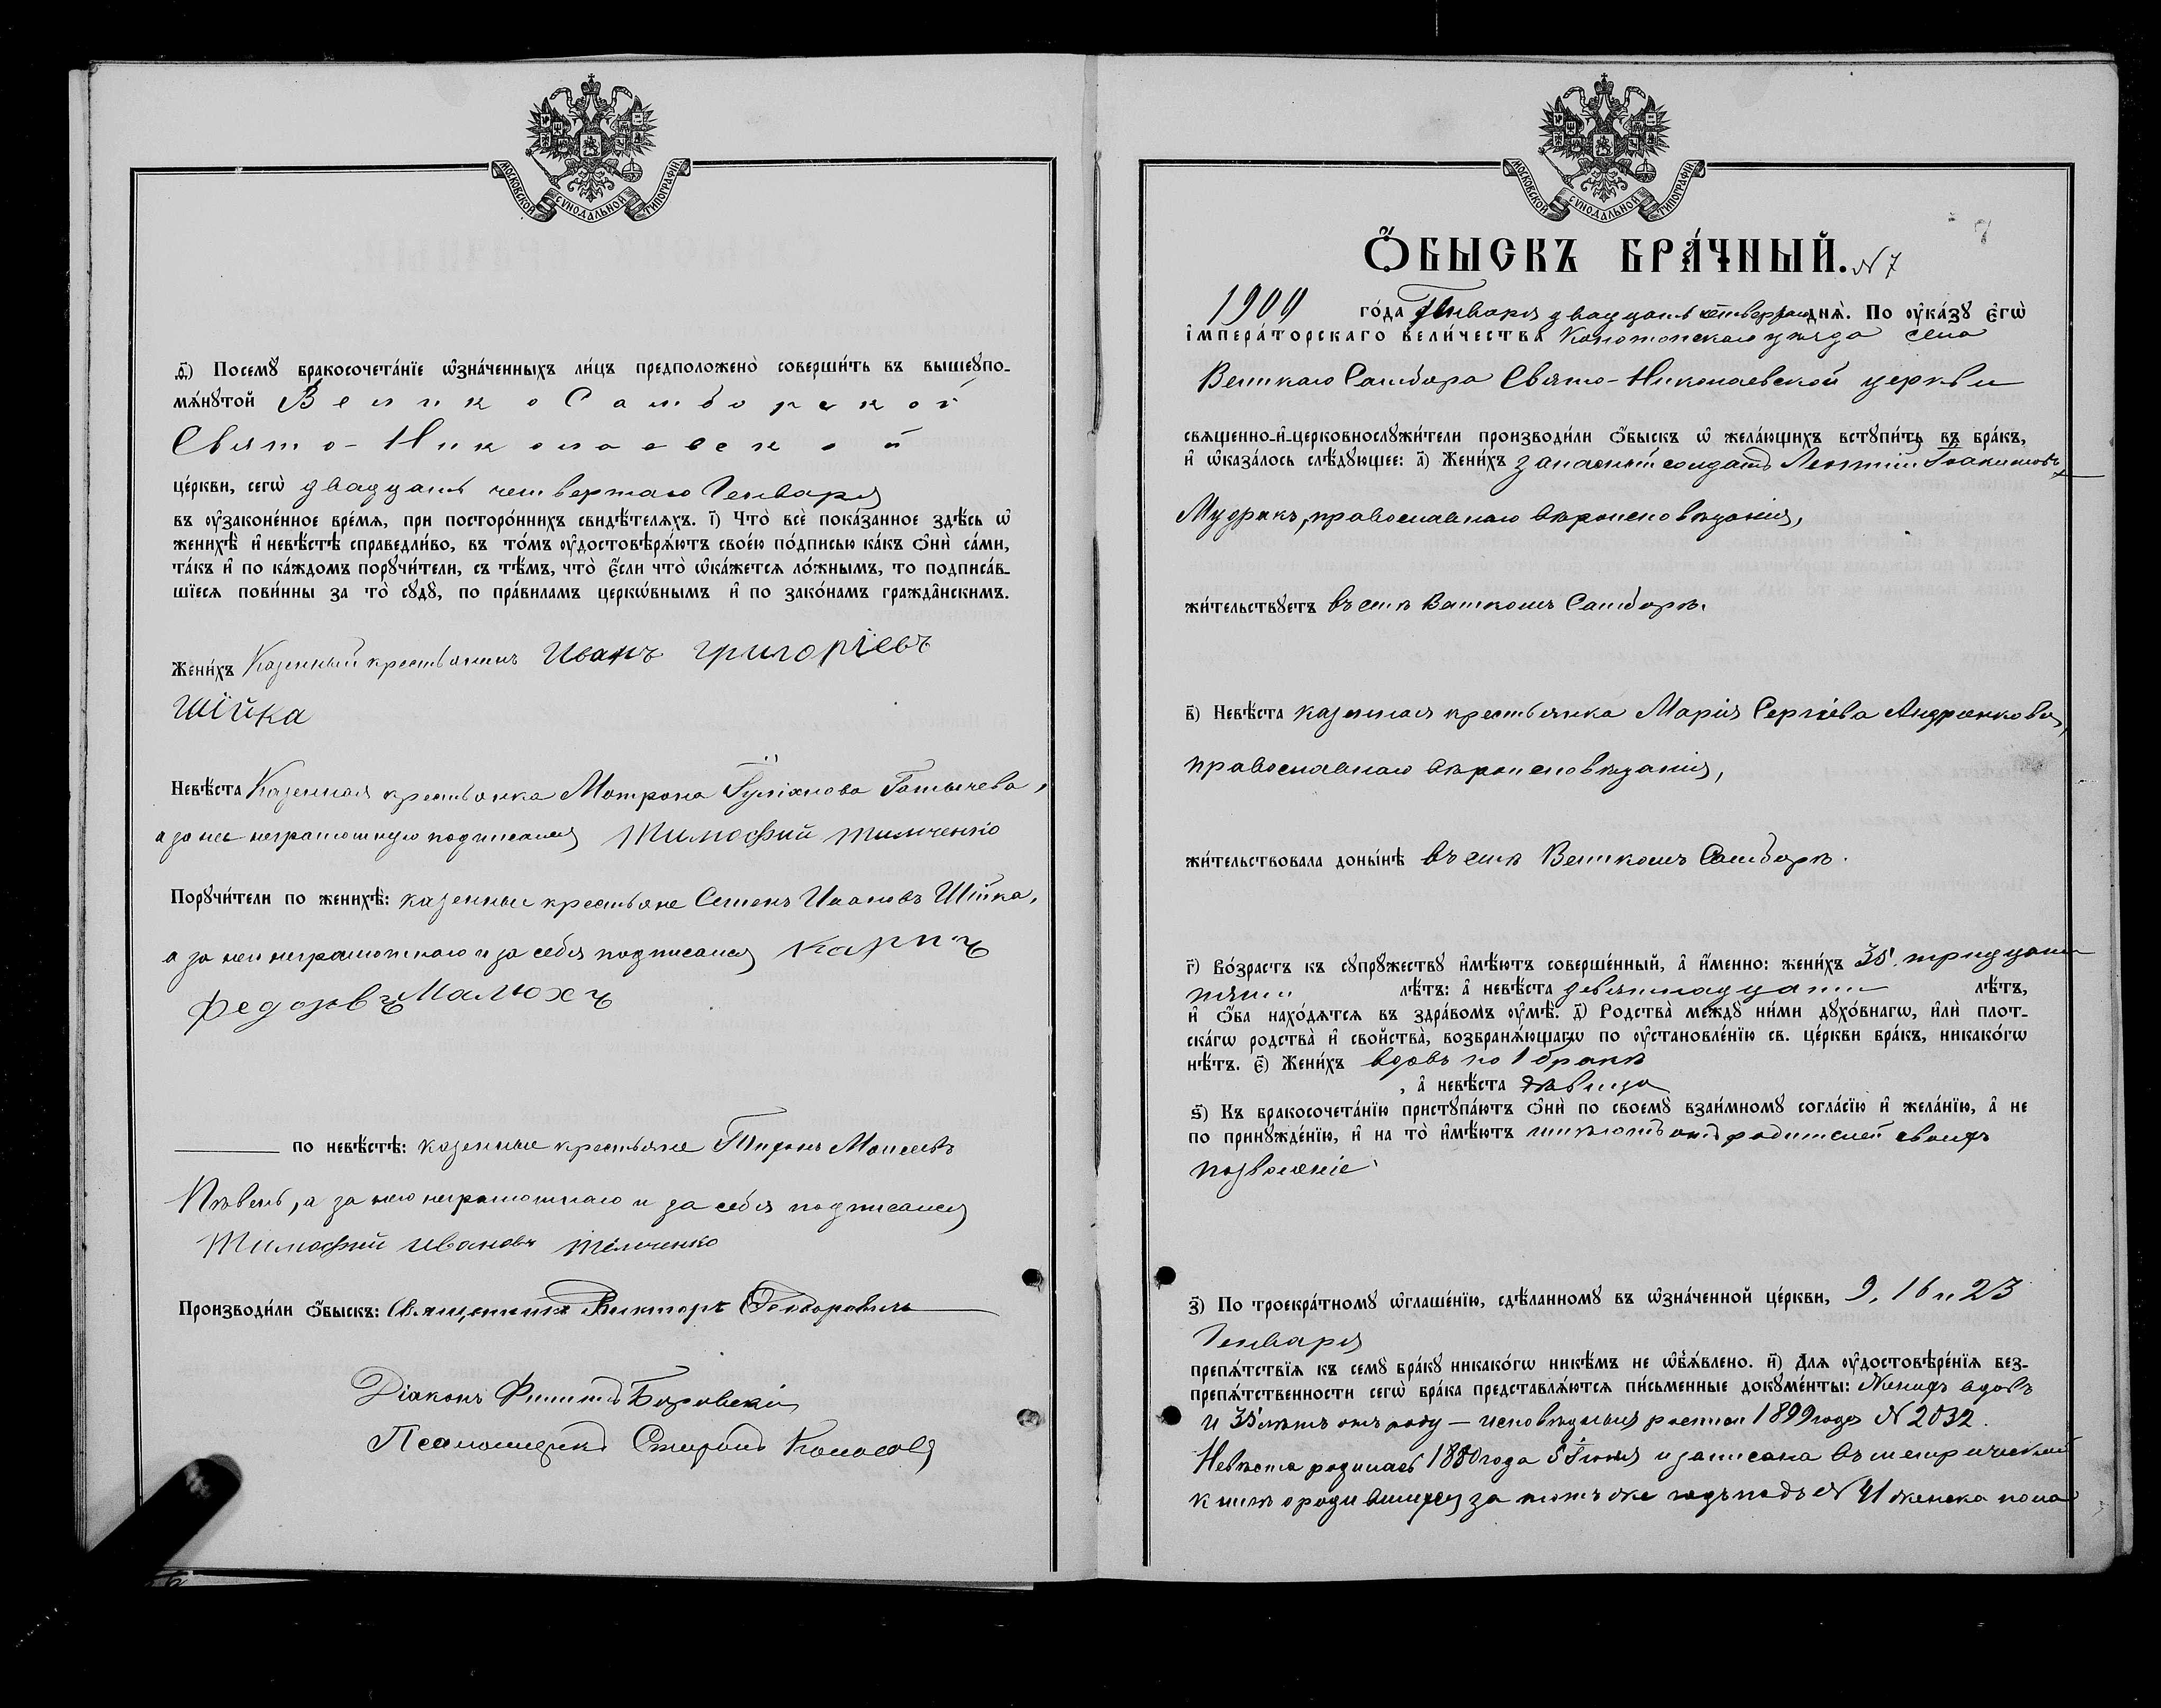 МОСКОВСКОЙ СУНОДАЛЬНОЙ ТИПОГРАФІИ
д҃і) Посемꙋ̀ бракосочета́нїе ѡ҆зна́ченныхъ ли́цъ предположено̀ соверши́ть въ вышеꙋпо-
мѧ́нꙋтой Велико Самборской
Свято-Николаевской
це́ркви, сегѡ̀ двадцать четвертаго Генваря
въ ᲂу҆законе́нное вре́мѧ, при посторо́ннихъ свидѣ́телѧхъ. і҃) Что̀ всѐ пока́занное здѣ́сь ѡ҆
женихѣ̀ и҆ невѣ́стѣ справедли́во, въ то́мъ ᲂу҆достовѣрѧ́ютъ свое́ю по́дписью ка́къ ѻ҆нѝ са́ми,
та́къ и҆ по ка́ждомъ порꙋчи́тели, съ тѣ́мъ, что̀ є҆́сли что̀ ѡ҆ка́жетсѧ ло́жнымъ, то подписа́в-
шїесѧ пови́нны за то̀ сꙋдꙋ̀, по пра́виламъ церко́внымъ и҆ по зако́намъ гражда̑нскимъ.
Жени́хъ Казенный крестьянинъ Иванъ Григоріевъ
Шійка
Невѣ́ста Казенная крестьянка Матрона
а за нее неграмотную подписался Тимофий Тимченко
Порꙋчи́тели по женихѣ̀: казенные крестьяне Семенъ Ивановъ Шійка,
а за него неграмотнаго и за себя подписался Карпъ
Федоровъ Малюхъ
по невѣ́стѣ: казенные крестьяне Моисеевъ
Пѣвень, а за него неграмотнаго и за себя подписался
Тимофий Ивановъ
Производи́ли ѻ҆́быскъ: Священникъ Викторъ Ѳеодоровичъ
Діаконъ Филиппъ Боровскій
Псаломщикъ Спиридонъ Колосовъ
МОСКОВСКОЙ СУНОДАЛЬНОЙ ТИПОГРАФІИ
Ѻ҆́БЫСКЪ БРА́ЧНЫЙ. N 7
1900 го́да Генваря двадцать четвертаго днѧ̀. По ᲂу҆ка́зꙋ є҆гѡ̀
і҆мпера́торскаго вели́чества Конотопскаго уѣзда села
Великаго Самбора Свято-Николаевской церкви
свѧще́нно-и҆-церковнослꙋжи́тели производи́ли ѻ҆́быскъ ѡ҆ жела́ющихъ встꙋпи́ть въ бра́къ,
и҆ ѡ҆каза́лось слѣ́дꙋющее: а҃) Жени́хъ запасный солдатъ Леонтій Іоакимовъ
Мудракъ, православнаго вѣроисповѣданія,
жи́тельствꙋетъ въ селѣ Великомъ Самборѣ.
в҃) Невѣ́ста казенная крестьянка Марія Сергіева Андріенкова,
православнаго вѣроисповѣданія,
жи́тельствовала доны́нѣ въ селѣ Великомъ Самборѣ.
г҃) Во́зрастъ къ сꙋпрꙋ́жествꙋ и҆мѣ́ютъ соверше́нный, а҆ и҆́менно: жени́хъ 35. тридцати
пяти лѣ́тъ: а҆ невѣ́ста девятнадцати лѣ́тъ,
и҆ ѻ҆́ба нахо́дѧтсѧ въ здра́вомъ ᲂу҆мѣ̀. д҃) Родства̀ междꙋ̀ ни́ми дꙋхо́внагѡ, и҆лѝ плот-
ска́гѡ родства̀ и҆ свойства̀, возбранѧ́ющагѡ по ᲂу҆становле́нїю св. це́ркви бра́къ, никако́гѡ
нѣ́тъ. є҃) Жени́хъ вдовъ по 1 бракѣ
, а҆ невѣ́ста дѣвица
ѕ҃) Къ бракосочета́нїю пристꙋпа́ютъ ѻ҆нѝ по своемꙋ̀ взаи́мномꙋ согла́сїю и҆ жела́нїю, а҆ не
по принꙋжде́нїю, и҆ на то̀ и҆мѣ́ютъ имѣютъ отъ родителей своихъ
позволеніе.
з҃) По троекра́тномꙋ ѡ҆глаше́нїю, сдѣ́ланномꙋ въ ѡ҆зна́ченной це́ркви, 9, 16 и 23
Генваря
препѧ́тствїѧ къ семꙋ̀ бра́кꙋ никако́гѡ никѣ́мъ не ѡ҆б̾ѧ́влено. и҃) Длѧ ᲂу҆достовѣре́нїѧ без-
препѧ́тственности сегѡ̀ бра́ка представлѧ́ютсѧ пи́сьменные докꙋме́нты: Женихъ вдовъ
и 35 лѣтъ отъ роду — исповѣдныя росписи 1899 года N 2032.
Невѣста родилась 1880 года 5 Іюня и записана въ метрической
книгѣ о родившихся за тотъ же годъ подъ N 41 женска пола